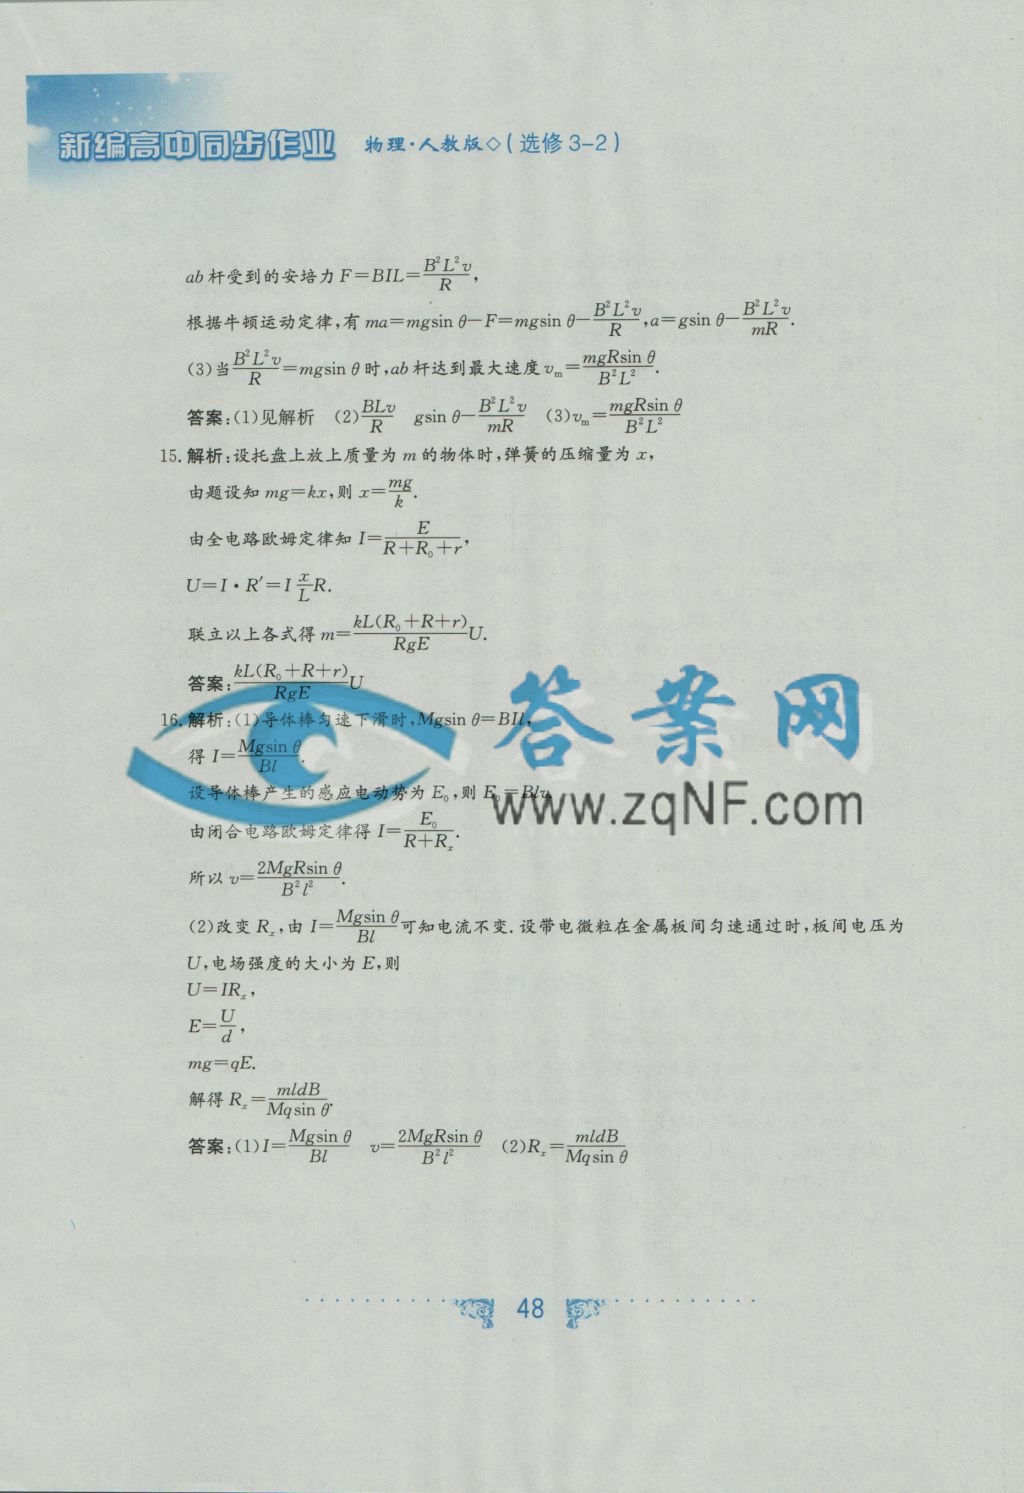 新编高中同步作业 物理·人教版◇(选修3-2)
ab杆受到的安培力F=BIL=B²L²v/R,
根据牛顿运动定律,有ma=mgsin θ-F=mgsin θ-B²L²v/R,a=gsin θ-B²L²v/mR.
(3)当B²L²v/R=mgsin θ时,ab杆达到最大速度vₘ=mgRsin θ/B²L².
答案:(1)见解析 (2)BLv/R gsin θ-B²L²v/mR (3)vₘ=mgRsin θ/B²L²
15.解析:设托盘上放上质量为m的物体时,弹簧的压缩量为x,
由题设知mg=kx,则x=mg/k.
由全电路欧姆定律知I=E/(R+R₀+r),
U=I·R′=I x/L R.
联立以上各式得m=kL(R₀+R+r)/RgE U.
答案:kL(R₀+R+r)/RgE U
16.解析:(1)导体棒匀速下滑时,Mgsin θ=BIl,
得I=Mgsin θ/Bl.
设导体棒产生的感应电动势为E₀,则E₀=Blv,
由闭合电路欧姆定律得I=E₀/(R+Rₓ).
所以v=2MgRsin θ/B²l².
(2)改变Rₓ,由I=Mgsin θ/Bl可知电流不变.设带电微粒在金属板间匀速通过时,板间电压为
U,电场强度的大小为E,则
U=IRₓ,
E=U/d,
mg=qE.
解得Rₓ=mldB/Mqsin θ.
答案:(1)I=Mgsin θ/Bl v=2MgRsin θ/B²l² (2)Rₓ=mldB/Mqsin θ
答案网
www.zqNF.com
48